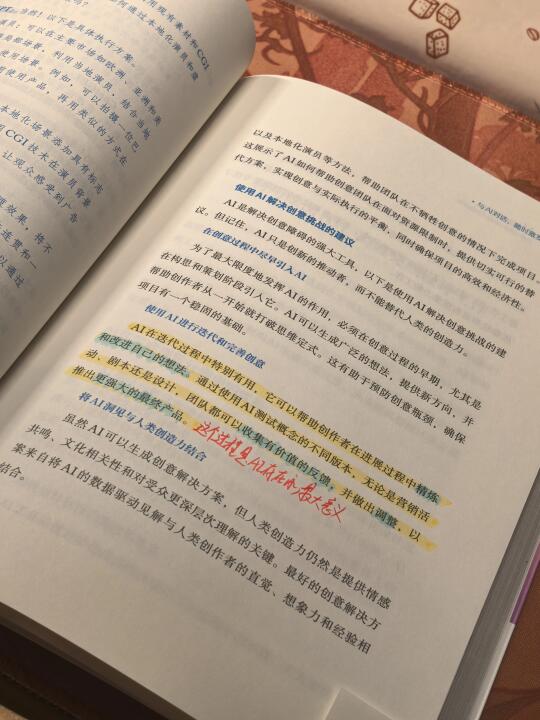 用现有素材和CGI
何通过本地化演员和量
当然！以下是具体执行方案。
演员：可以在主要市场如欧洲、亚洲和美
局部场景，利用当地演员，结合当地
使用场景。例如，可以拍摄一位巴
使用产品，再用类似的方式在
本地化场景添加具有标志
CGI 技术在演员背景
让观众感受到广告
效果，将不
连贯和一
可以通过
·与AI对话：
以及本地化演员等方法，帮助团队在不牺牲创意的情况下完成项目。
这展示了 AI 如何帮助创意团队在面对资源限制时，提供切实可行的替
代方案，实现创意与实际执行的平衡，同时确保项目的高效和经济性。
使用 AI 解决创意挑战的建议
AI 是解决创意障碍的强大工具，以下是使用 AI 解决创意挑战的建
议。但记住，AI 只是创新的推动者，而不能替代人类的创造力。
在创意过程中尽早引入 AI
为了最大限度地发挥 AI 的作用，必须在创意过程的早期，尤其是
在构思和策划阶段引入它。AI 可以生成广泛的想法，提供新方向，并
帮助创作者从一开始就打破思维定式。这有助于预防创意瓶颈，确保
项目有一个稳固的基础。
使用 AI 进行迭代和完善创意
AI 在迭代过程中特别有用，它可以帮助创作者在进展过程中精炼
和改进自己的想法。通过使用 AI 测试概念的不同版本，无论是营销活
动、剧本还是设计，团队都可以收集有价值的反馈，并做出调整，以
推出更强大的最终产品。
这个过程是AI存在的最大意义
将 AI 洞见与人类创造力结合
虽然 AI 可以生成创意解决方案，但人类创造力仍然是提供情感
共鸣、文化相关性和对受众更深层次理解的关键。最好的创意解决方
案来自将 AI 的数据驱动见解与人类创作者的直觉、想象力和经验相
结合。